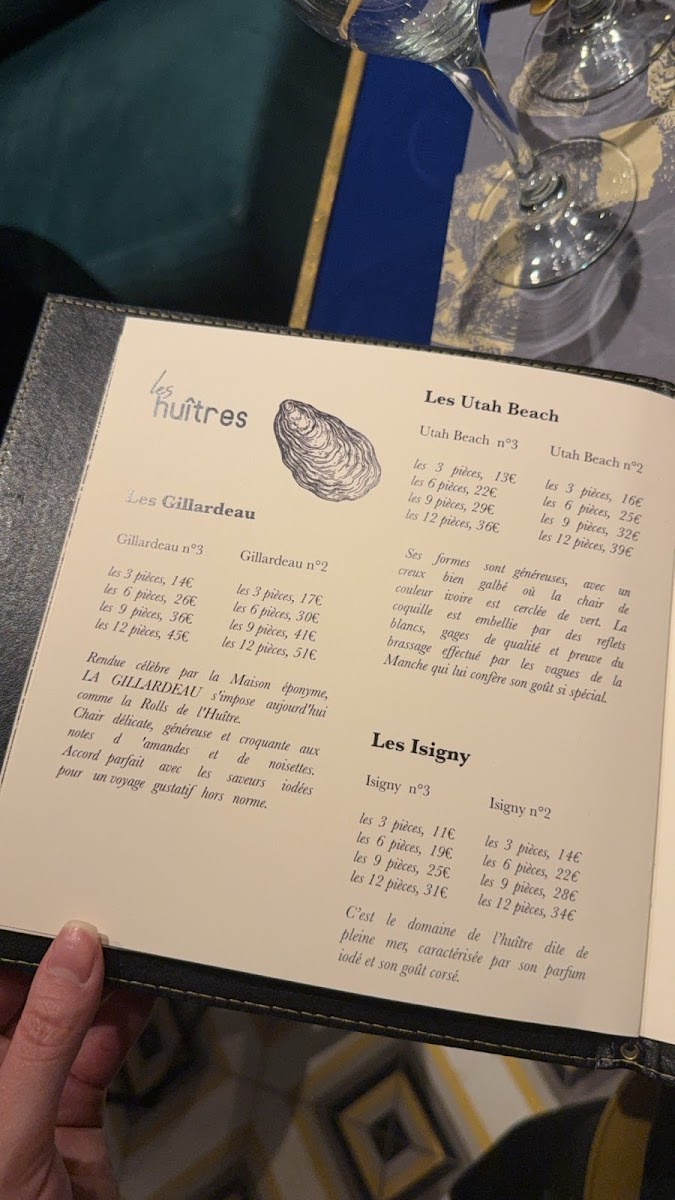 les
huîtres
Les Gillardeau
Gillardeau n°3
les 3 pièces, 14€
les 6 pièces, 26€
les 9 pièces, 36€
les 12 pièces, 45€
Gillardeau n°2
les 3 pièces, 17€
les 6 pièces, 30€
les 9 pièces, 41€
les 12 pièces, 51€
Rendue célèbre par la Maison éponyme,
LA GILLARDEAU s'impose aujourd'hui
comme la Rolls de l'Huître.
Chair délicate, généreuse et croquante aux
notes d 'amandes et de noisettes.
Accord parfait avec les saveurs iodées
pour un voyage gustatif hors norme.
Les Utah Beach
Utah Beach n°3
les 3 pièces, 13€
les 6 pièces, 22€
les 9 pièces, 29€
les 12 pièces, 36€
Utah Beach n°2
les 3 pièces, 16€
les 6 pièces, 25€
les 9 pièces, 32€
les 12 pièces, 39€
Ses formes sont généreuses, avec un
creux bien galbé où la chair de
couleur ivoire est cerclée de vert. La
coquille est embellie par des reflets
blancs, gages de qualité et preuve du
brassage effectué par les vagues de la
Manche qui lui confère son goût si spécial.
Les Isigny
Isigny n°3
les 3 pièces, 11€
les 6 pièces, 19€
les 9 pièces, 25€
les 12 pièces, 31€
Isigny n°2
les 3 pièces, 14€
les 6 pièces, 22€
les 9 pièces, 28€
les 12 pièces, 34€
C'est le domaine de l'huître dite de
pleine mer, caractérisée par son parfum
iodé et son goût corsé.